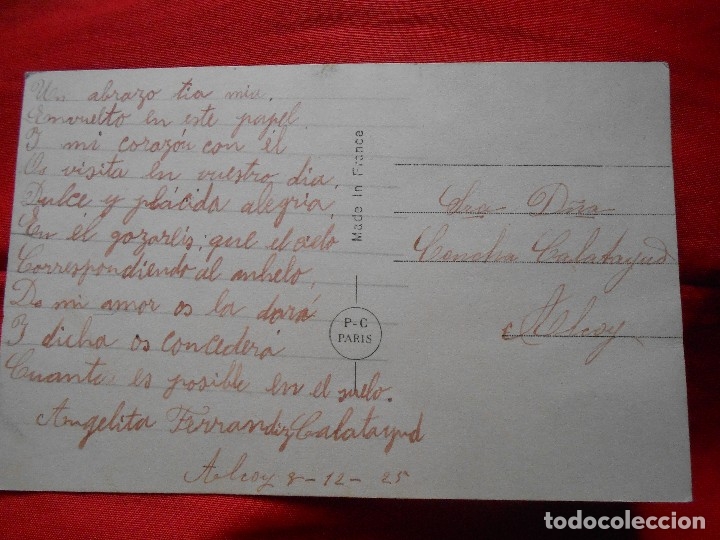 Un abrazo tia mia.
Envuelto en este papel
Y mi corazón con él
Os visita en vuestro dia,
Dulce y plácida alegria,
En él gozaréis; que el cielo
Correspondiendo al anhelo,
De mi amor os la dará
Y dicha os concederá
Cuanta es posible en el suelo.
Angelita Ferrandiz Calatayud
Alcoy 8-12-25
Made in France
P-C
PARIS
Sra Dña
Concha Calatayud
Alcoy
todocoleccion.net